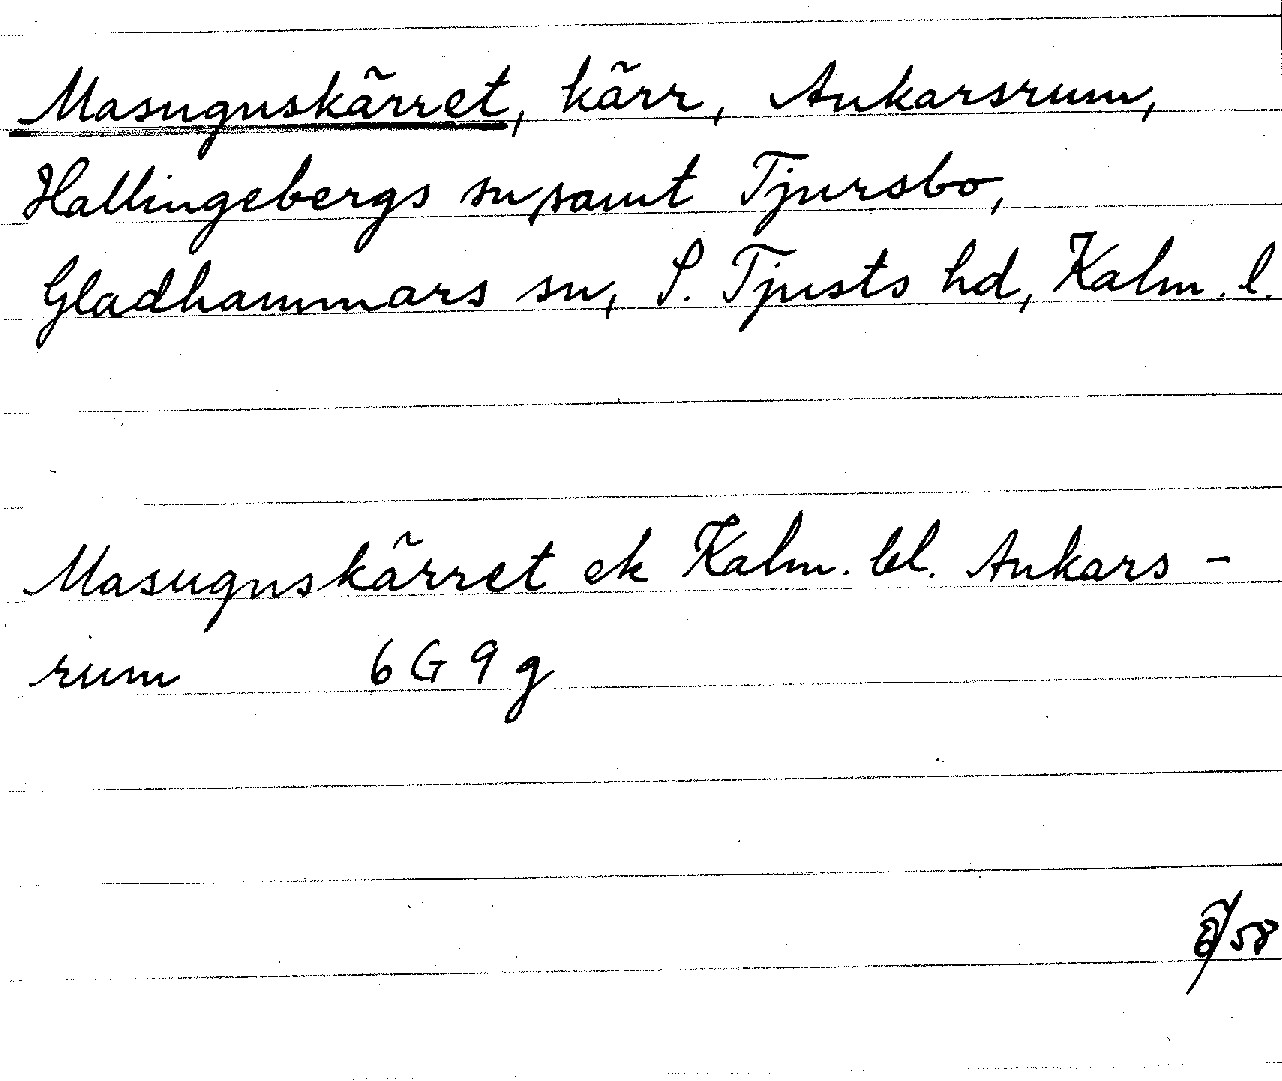 Masugnskärret, kärr, Ankarsrum,
Hallingebergs sn, samt Tjursbo,
Gladhammars sn, S. Tjusts hd, Kalm. l.
Masugnskärret ek Kalm. bl. Ankars-
rum 6 G 9 g
/58